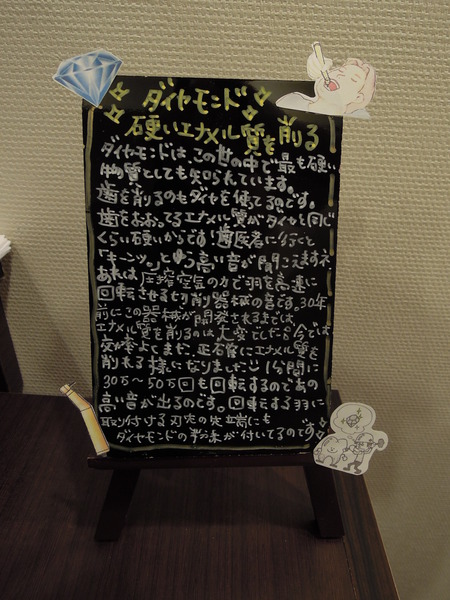 ダイヤモンド
硬いエナメル質を削る
ダイヤモンドは、この世の中で最も硬い
物質としても知られています。
歯を削るのもダイヤを使ってるのです。
歯をおおってるエナメル質がダイヤと同じ
くらい硬いからです!歯医者に行くと
「キーンッ。」とゆう高い音が聞こえますネ
あれは圧縮空気の力で羽を高速に
回転させる切削器械の音です。30年
前にこの器械が開発されるまでは
エナメル質を削るのは大変でした。今では
効率よくまた、正確にエナメル質を
削れる様になりました 1分間に
30万〜50万回も回転するのであの
高い音が出るのです。回転する羽に
取り付ける刃先の先端にも
ダイヤモンドの粉末が付いてるのです